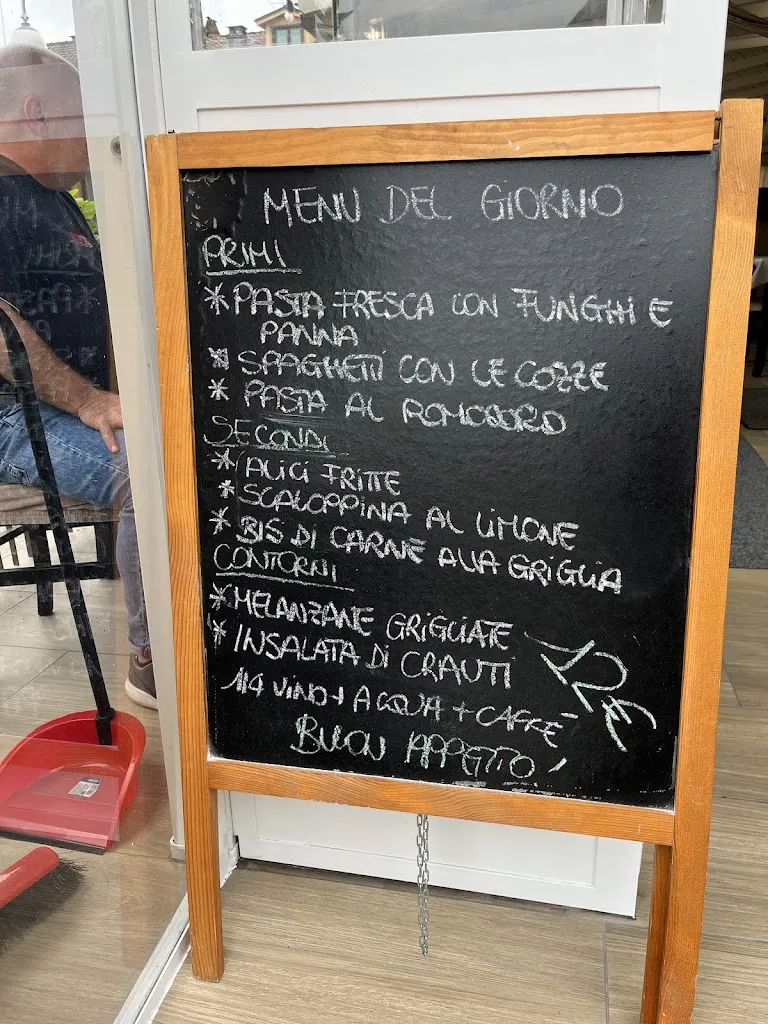 MENU DEL GIORNO
PRIMI
* PASTA FRESCA CON FUNGHI E
PANNA
* SPAGHETTI CON LE COZZE
* PASTA AL POMODORO
SECONDI
* ALICI FRITTE
* SCALOPPINA AL LIMONE
* BIS DI CARNE ALLA GRIGLIA
CONTORNI
* MELANZANE GRIGLIATE
* INSALATA DI CRAUTI
12€
1/4 VINO + ACQUA + CAFFÈ
BUON APPETITO!